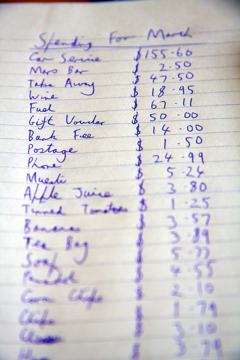 Spending For March
Car Service $155.60
Mars Bar $ 2.50
Take Away $ 47.50
Wine $ 18.95
Fuel $ 67.11
Gift Voucher $ 50.00
Bank Fee $ 14.00
Postage $ 1.50
Phone $ 24.99
Muesli $ 5.24
Apple Juice $ 3.80
Tinned Tomatoes $ 1.25
Bananas $ 3.57
Tea Bag $ 3.89
Soap $ 5.77
$ 4.55
Corn Chips $ 2.10
Chips $ 1.79
$ 3.10
$ 3.79